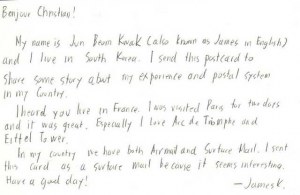 Bonjour Christian!
My name is Jun Beom Kwak (also known as James in English)
and I live in South Korea. I send this postcard to
share some story about my experience and postal system
in my Country.
I heard you live in France. I was visited Paris for two days
and it was great. Especially I love Arc de Triomphe and
Eiffel Tower.
In my country we have both Airmail and Surface Mail. I sent
this card as a surface mail because it seems interesting.
Have a good day!
— James K.